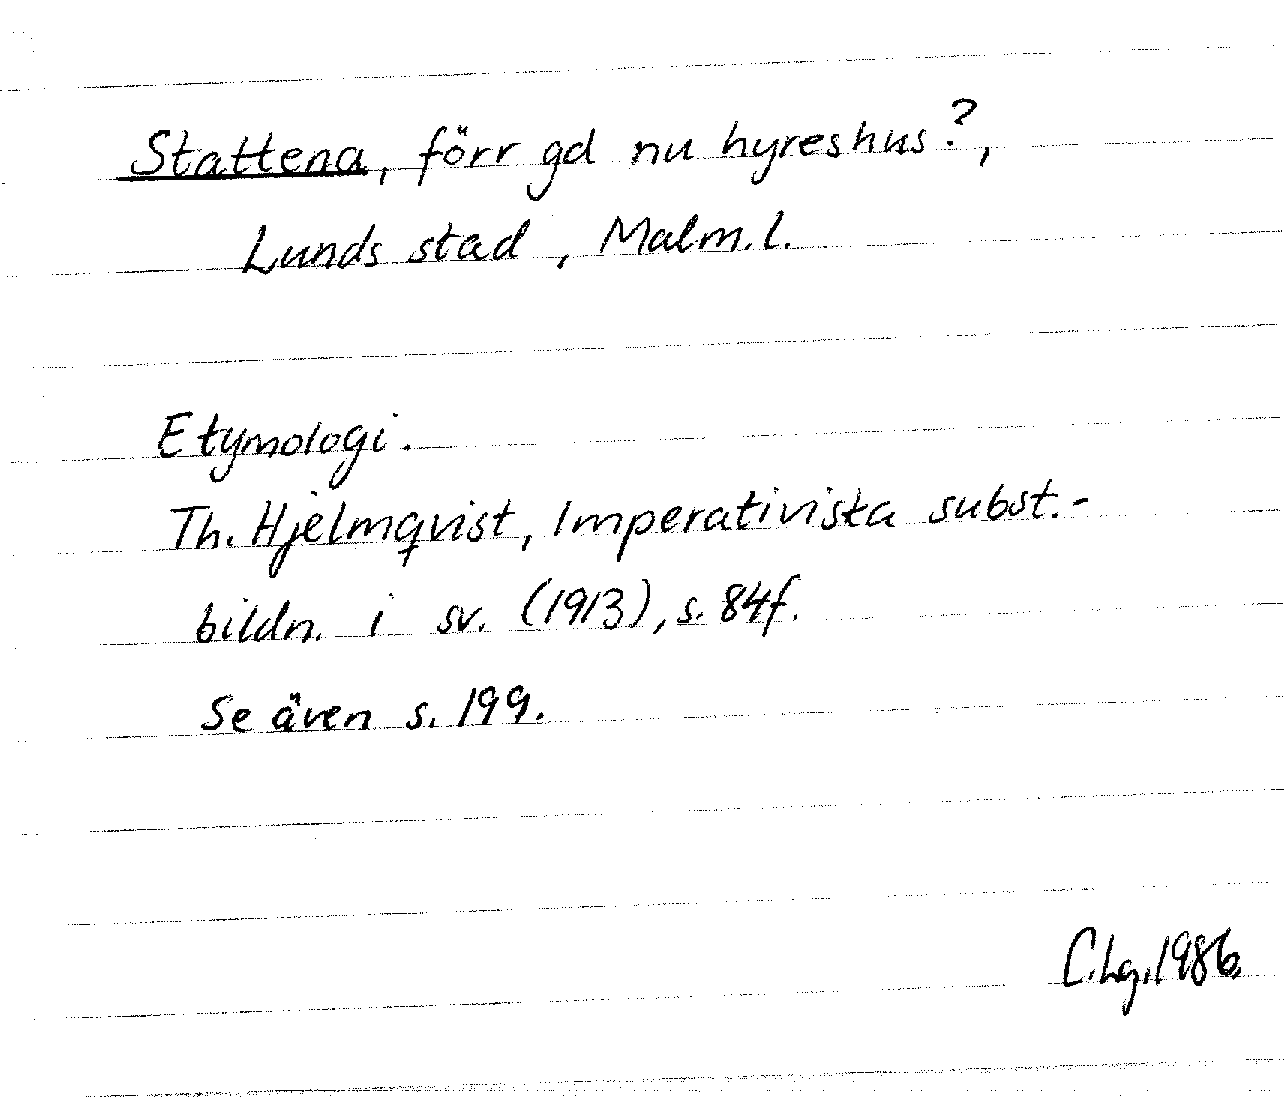 Stattena, förr gd nu hyreshus?,
Lunds stad, Malm.l.
Etymologi.
Th. Hjelmqvist, Imperativiska subst.-
bildn. i sv. (1913), s. 84f.
Se även s. 199.
C.Lg.1986.